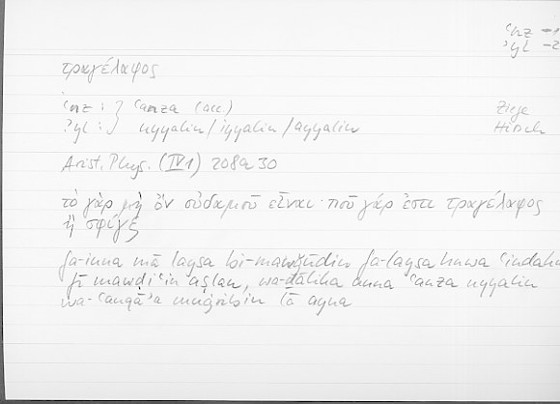 ʿnz –1
ʾyl –2
τραγέλαφος
ʿnz : } ʿanza (acc.) Ziege
ʾyl : } uyyalin / iyyalin / ayyalin Hirsch
Arist. Phys. (IV 1) 208a 30
τὸ γὰρ μὴ ὂν οὐδαμοῦ εἶναι· ποῦ γάρ ἐστι τραγέλαφος
ἢ σφίγξ
fa-inna mā laysa bi-mawǧūdin fa-laysa huwa ʿindahu
fī mawḍiʿin aṣlan, wa-ḏālika anna ʿanza uyyalin
wa-ʿanqāʾa muġribin lā ayna